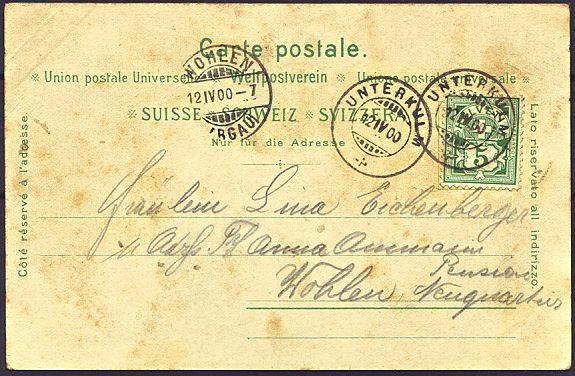 Carte postale.
* Union postale Universelle * Weltpostverein * Unione postale universale *
SUISSE · SCHWEIZ · SVIZZERA
Nur für die Adresse
Côté réservé à l'adresse.
Lato riservato all indirizzo.
WOHLEN
12 IV 00 - 7
(ARGAU)
UNTERKULM
12 IV 00
UNTERKULM
12 IV 00
5
Fräulein Lina Eichenberger
Anna Ammann
Pension
Wohlen Neuquartier